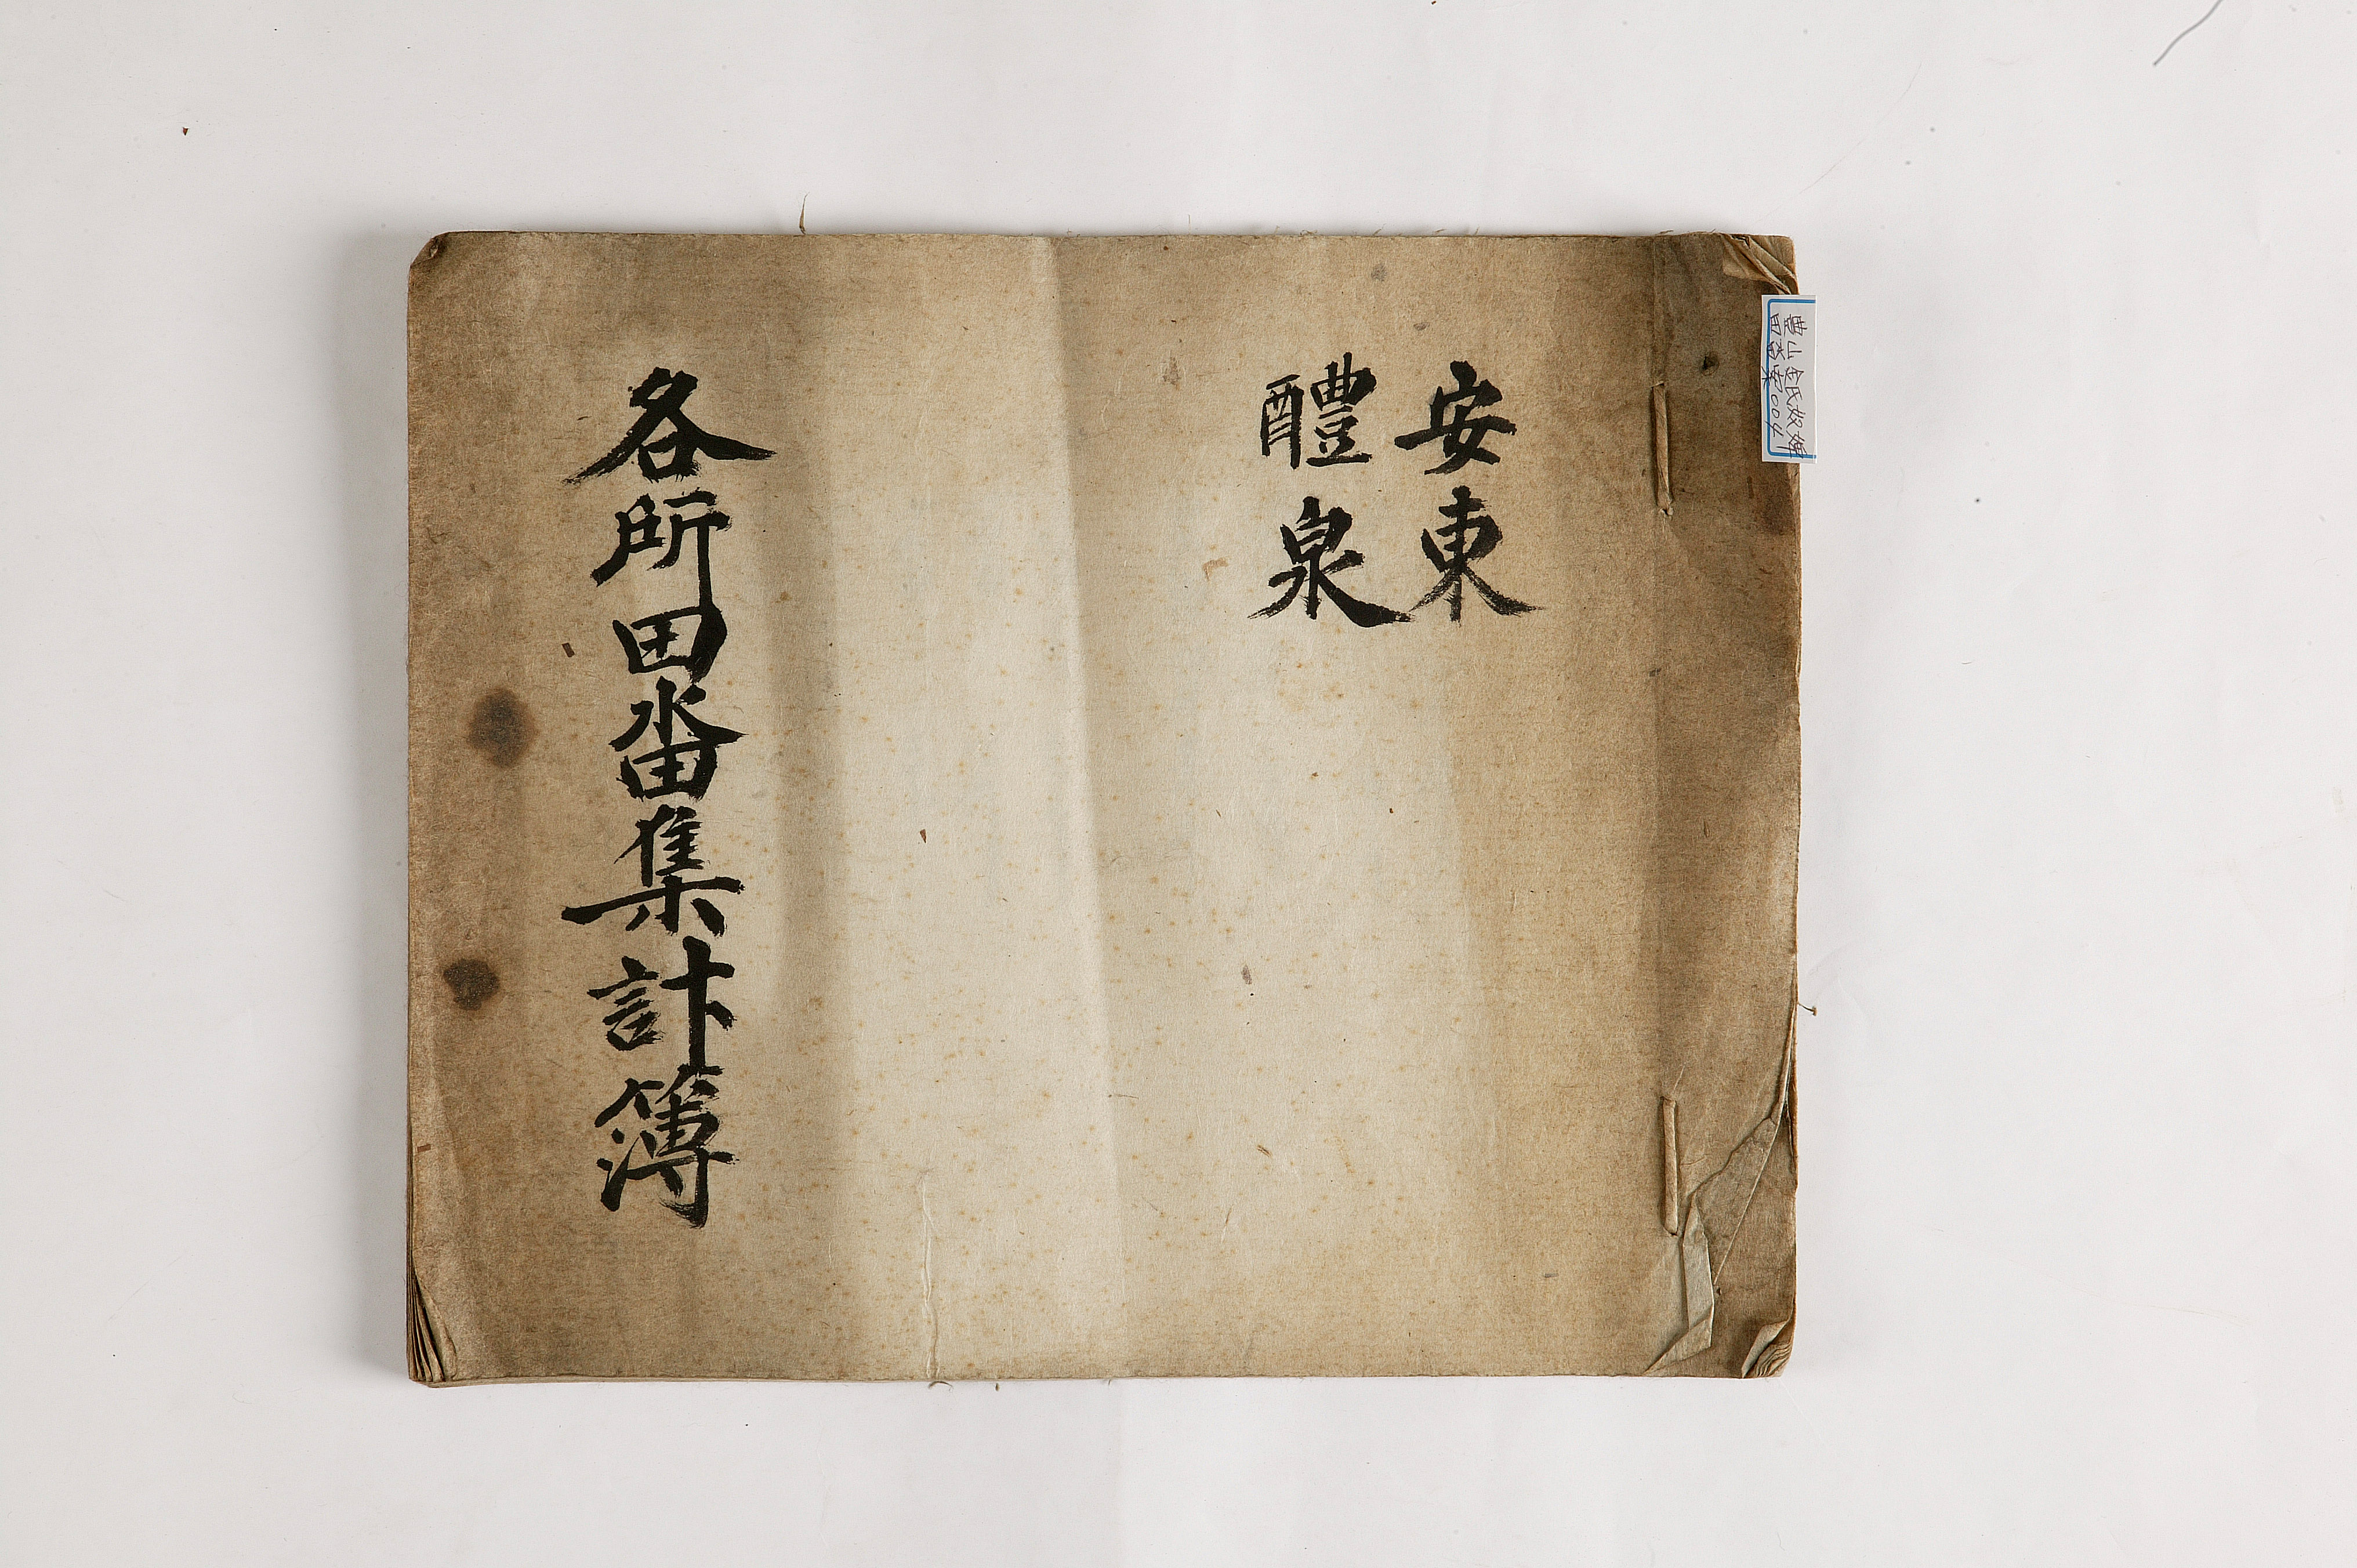 安東
醴泉
各所田畓集計簿
豊山金氏奴婢
田畓案0004